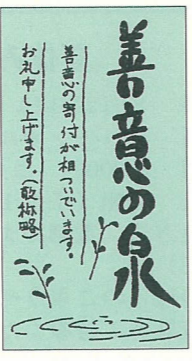 善意の泉
善意の寄付が相ついでいます。
お礼申し上げます。（敬称略）